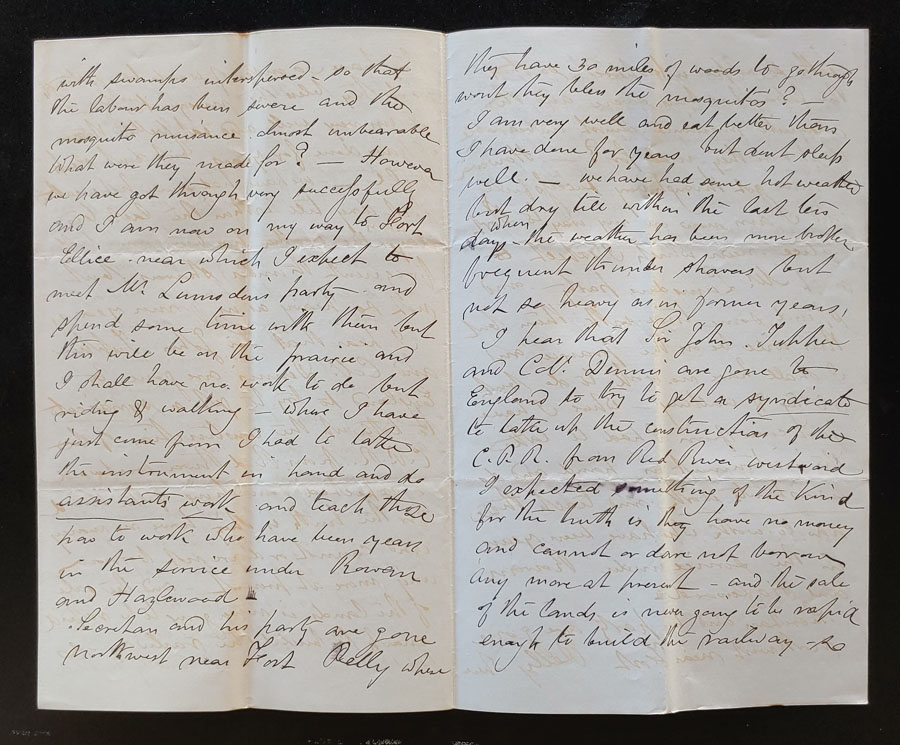 with swamps interspersed - so that
the labour has been severe and the
mosquito nuisance almost unbearable
What were they made for? — However
we have got through very successfully
and I am now on my way to Fort
Ellice. near which I expect to
meet Mr. Lumsden's party and
spend some time with them but
this will be on the prairie and
I shall have no work to do but
riding & walking - where I have
just come from I had to take
the instrument in hand and do
assistants work and teach those
how to work who have been years
in the service under Rowan
and Hazlewood
Secretan and his party are gone
northwest near Fort Pelly where
they have 30 miles of woods to go through
wont they bless the mosquitos? —
I am very well and eat better than
I have done for years but dont sleep
well. — we have had some hot weather
but dry till within the last ten
days - when the weather has been more broken
frequent thunder showers but
not so heavy as in former years,
I hear that Sir John. Tupper
and Col. Dennis are gone to
England to try to get a syndicate
to take up the construction of the
C.P.R. from Red River westward
I expected something of the kind
for the truth is they have no money
and cannot or dare not borrow
any more at present - and the sale
of the lands is never going to be rapid
enough to build the railway - so